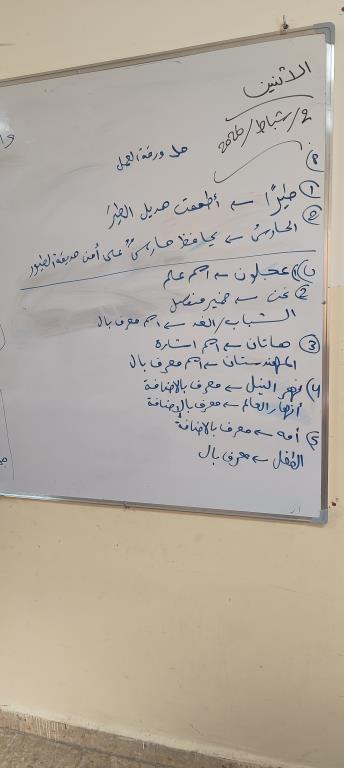 الاثنين
2/شباط/2026
حل ورقة العمل
① طيرًا ← أطعمت هديل الطيرَ
② الحارسُ ← يحافظ حارسٌ على أمن حديقة الطيور
① عجلون ← اسم علم
② نحن ← ضمير منفصل
الشباب/الغد ← اسم معرف بال
③ هاتان ← اسم اشارة
المهندستان ← اسم معرف بال
④ نهر النيل ← معرف بالاضافة
أنهار العالم ← معرف بالإضافة
⑤ أمه ← معرف بالاضافة
الطفل ← معرف بال